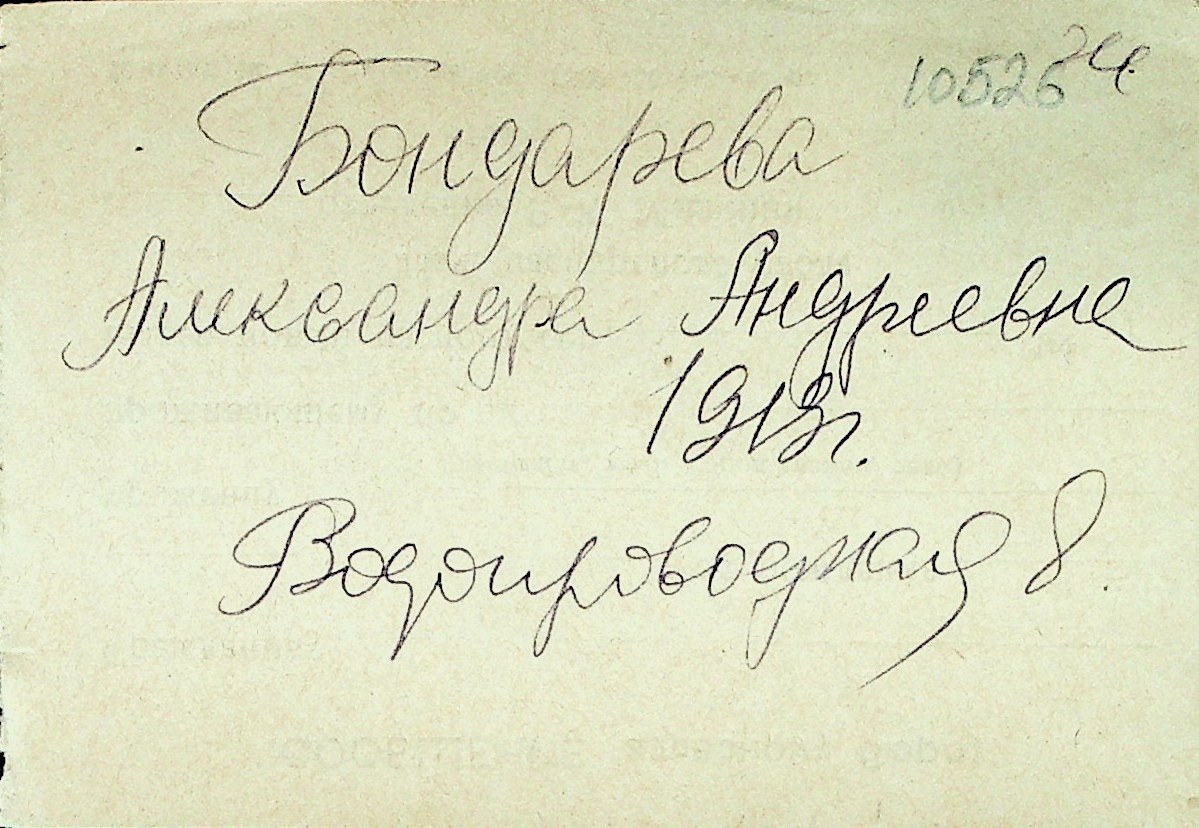 10526
Бондарева
Александра Андреевна
1913г.
Водопроводная 8.